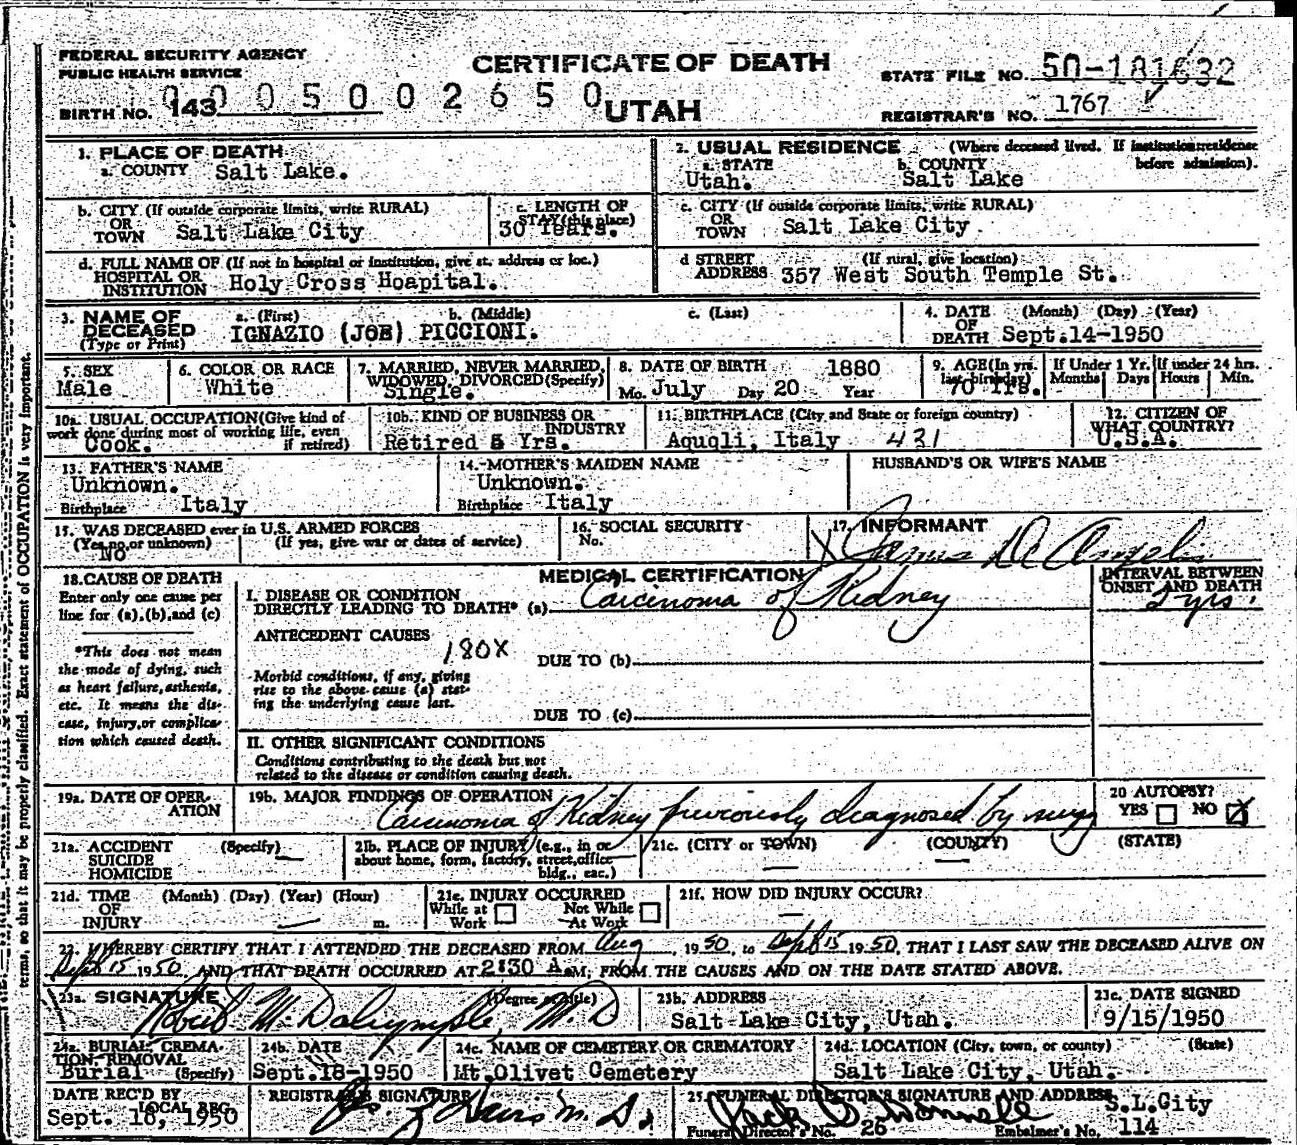 FEDERAL SECURITY AGENCY
PUBLIC HEALTH SERVICE
CERTIFICATE OF DEATH
UTAH
STATE FILE NO. 50-181632
BIRTH NO. 143
0005002650
REGISTRAR'S NO. 1767
1. PLACE OF DEATH
a. COUNTY Salt Lake.
2. USUAL RESIDENCE (Where deceased lived. If institution: residence before admission).
a. STATE Utah.
b. COUNTY Salt Lake
b. CITY (If outside corporate limits, write RURAL) OR TOWN Salt Lake City
c. LENGTH OF STAY (this place) 30 Years.
c. CITY (If outside corporate limits, write RURAL) OR TOWN Salt Lake City.
d. FULL NAME OF (If not in hospital or institution, give st. address or loc.) HOSPITAL OR INSTITUTION Holy Cross Hoapital.
d STREET ADDRESS (If rural, give location) 357 West South Temple St.
3. NAME OF DECEASED (Type or Print)
a. (First) b. (Middle) c. (Last)
IGNAZIO (JOE) PICCIONI.
4. DATE OF DEATH (Month) (Day) (Year) Sept.14-1950
5. SEX Male
6. COLOR OR RACE White
7. MARRIED, NEVER MARRIED, WIDOWED, DIVORCED (Specify) Single.
8. DATE OF BIRTH Mo. July Day 20 1880 Year
9. AGE (In yrs. last birthday) 70 Yrs.
If Under 1 Yr. Months Days
If under 24 hrs. Hours Min.
10a. USUAL OCCUPATION (Give kind of work done during most of working life, even if retired) Cook.
10b. KIND OF BUSINESS OR INDUSTRY Retired 5 Yrs.
11. BIRTHPLACE (City and State or foreign country) Aquqli, Italy 431
12. CITIZEN OF WHAT COUNTRY? U.S.A.
13. FATHER'S NAME Unknown.
Birthplace Italy
14. MOTHER'S MAIDEN NAME Unknown.
Birthplace Italy
HUSBAND'S OR WIFE'S NAME
15. WAS DECEASED ever in U.S. ARMED FORCES
(Yes, no, or unknown) (If yes, give war or dates of service)
No
16. SOCIAL SECURITY No.
17. INFORMANT
X James De Angelis
18. CAUSE OF DEATH
Enter only one cause per line for (a), (b), and (c)
*This does not mean the mode of dying, such as heart failure, asthenia, etc. It means the disease, injury, or complication which caused death.
MEDICAL CERTIFICATION
I. DISEASE OR CONDITION DIRECTLY LEADING TO DEATH* (a) Carcinoma of Kidney
INTERVAL BETWEEN ONSET AND DEATH
2 yrs.
ANTECEDENT CAUSES
180X
DUE TO (b)
Morbid conditions, if any, giving rise to the above cause (a) stating the underlying cause last.
DUE TO (c)
II. OTHER SIGNIFICANT CONDITIONS
Conditions contributing to the death but not related to the disease or condition causing death.
19a. DATE OF OPERATION
19b. MAJOR FINDINGS OF OPERATION
Carcinoma of Kidney previously diagnosed by
20 AUTOPSY?
YES NO X
21a. ACCIDENT SUICIDE HOMICIDE (Specify) —
21b. PLACE OF INJURY (e.g., in or about home, form, factory, street, office bldg., eac.)
21c. (CITY or TOWN) — (COUNTY) — (STATE)
21d. TIME OF INJURY (Month) (Day) (Year) (Hour) — m.
21e. INJURY OCCURRED
While at Work Not While At Work
21f. HOW DID INJURY OCCUR?
—
22. I HEREBY CERTIFY THAT I ATTENDED THE DECEASED FROM Aug 1950, to Sept 15 1950, THAT I LAST SAW THE DECEASED ALIVE ON
Sept 15 1950, AND THAT DEATH OCCURRED AT 2:30 A.M, FROM THE CAUSES AND ON THE DATE STATED ABOVE.
23a. SIGNATURE (Degree or title)
Robert M. Dalrymple, M.D
23b. ADDRESS
Salt Lake City, Utah.
23c. DATE SIGNED
9/15/1950
24a. BURIAL, CREMATION, REMOVAL (Specify) Burial
24b. DATE
Sept.18-1950
24c. NAME OF CEMETERY OR CREMATORY
Mt.Olivet Cemetery
24d. LOCATION (City, town, or county) (State)
Salt Lake City, Utah.
DATE REC'D BY LOCAL REG
Sept. 16, 1950
REGISTRAR'S SIGNATURE
25. FUNERAL DIRECTOR'S SIGNATURE AND ADDRESS
S.L.City
Funeral Director's No. 26
Embelmer's No. 114
terms, so that it may be properly classified. Exact statement of OCCUPATION is very important.